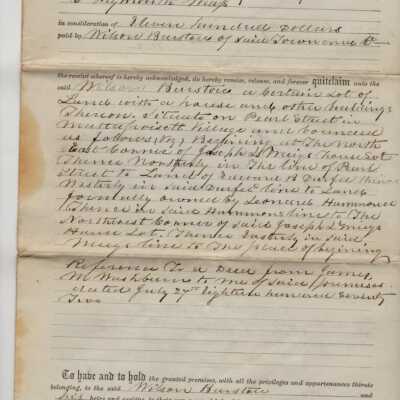 in consideration of Eleven hundred Dollars
paid by Wilson Burstow of said Town and
the receipt whereof is hereby acknowledged, do hereby remise, release, and forever quitclaim unto the
said Wilson Burstow a Certain Lot of
Land with a house and other buildings
Thereon. Situate on Pearl Street in
Mattapoisett Village and bounded
as follows, viz Beginning at The North
East Corner of Joseph L Meigs house lot
Thence Northerly in The line of Pearl
Street to Land of Edward B thence
Westerly in said line to Land
formally owned by Leonard Hammond
thence in said Hammond line to The
Northwest Corner of said Joseph L Meigs
House Lot. Thence Easterly in said
Meigs line to The place of begining
Reference To a Deed from James
M Washburn to me of said premises
dated July 27th Eighteen hundred Seventy
Two
To have and to hold the granted premises, with all the privileges and appurtenances thereto
belonging, to the said Wilson Burstow and
his heirs and assigns, to their own